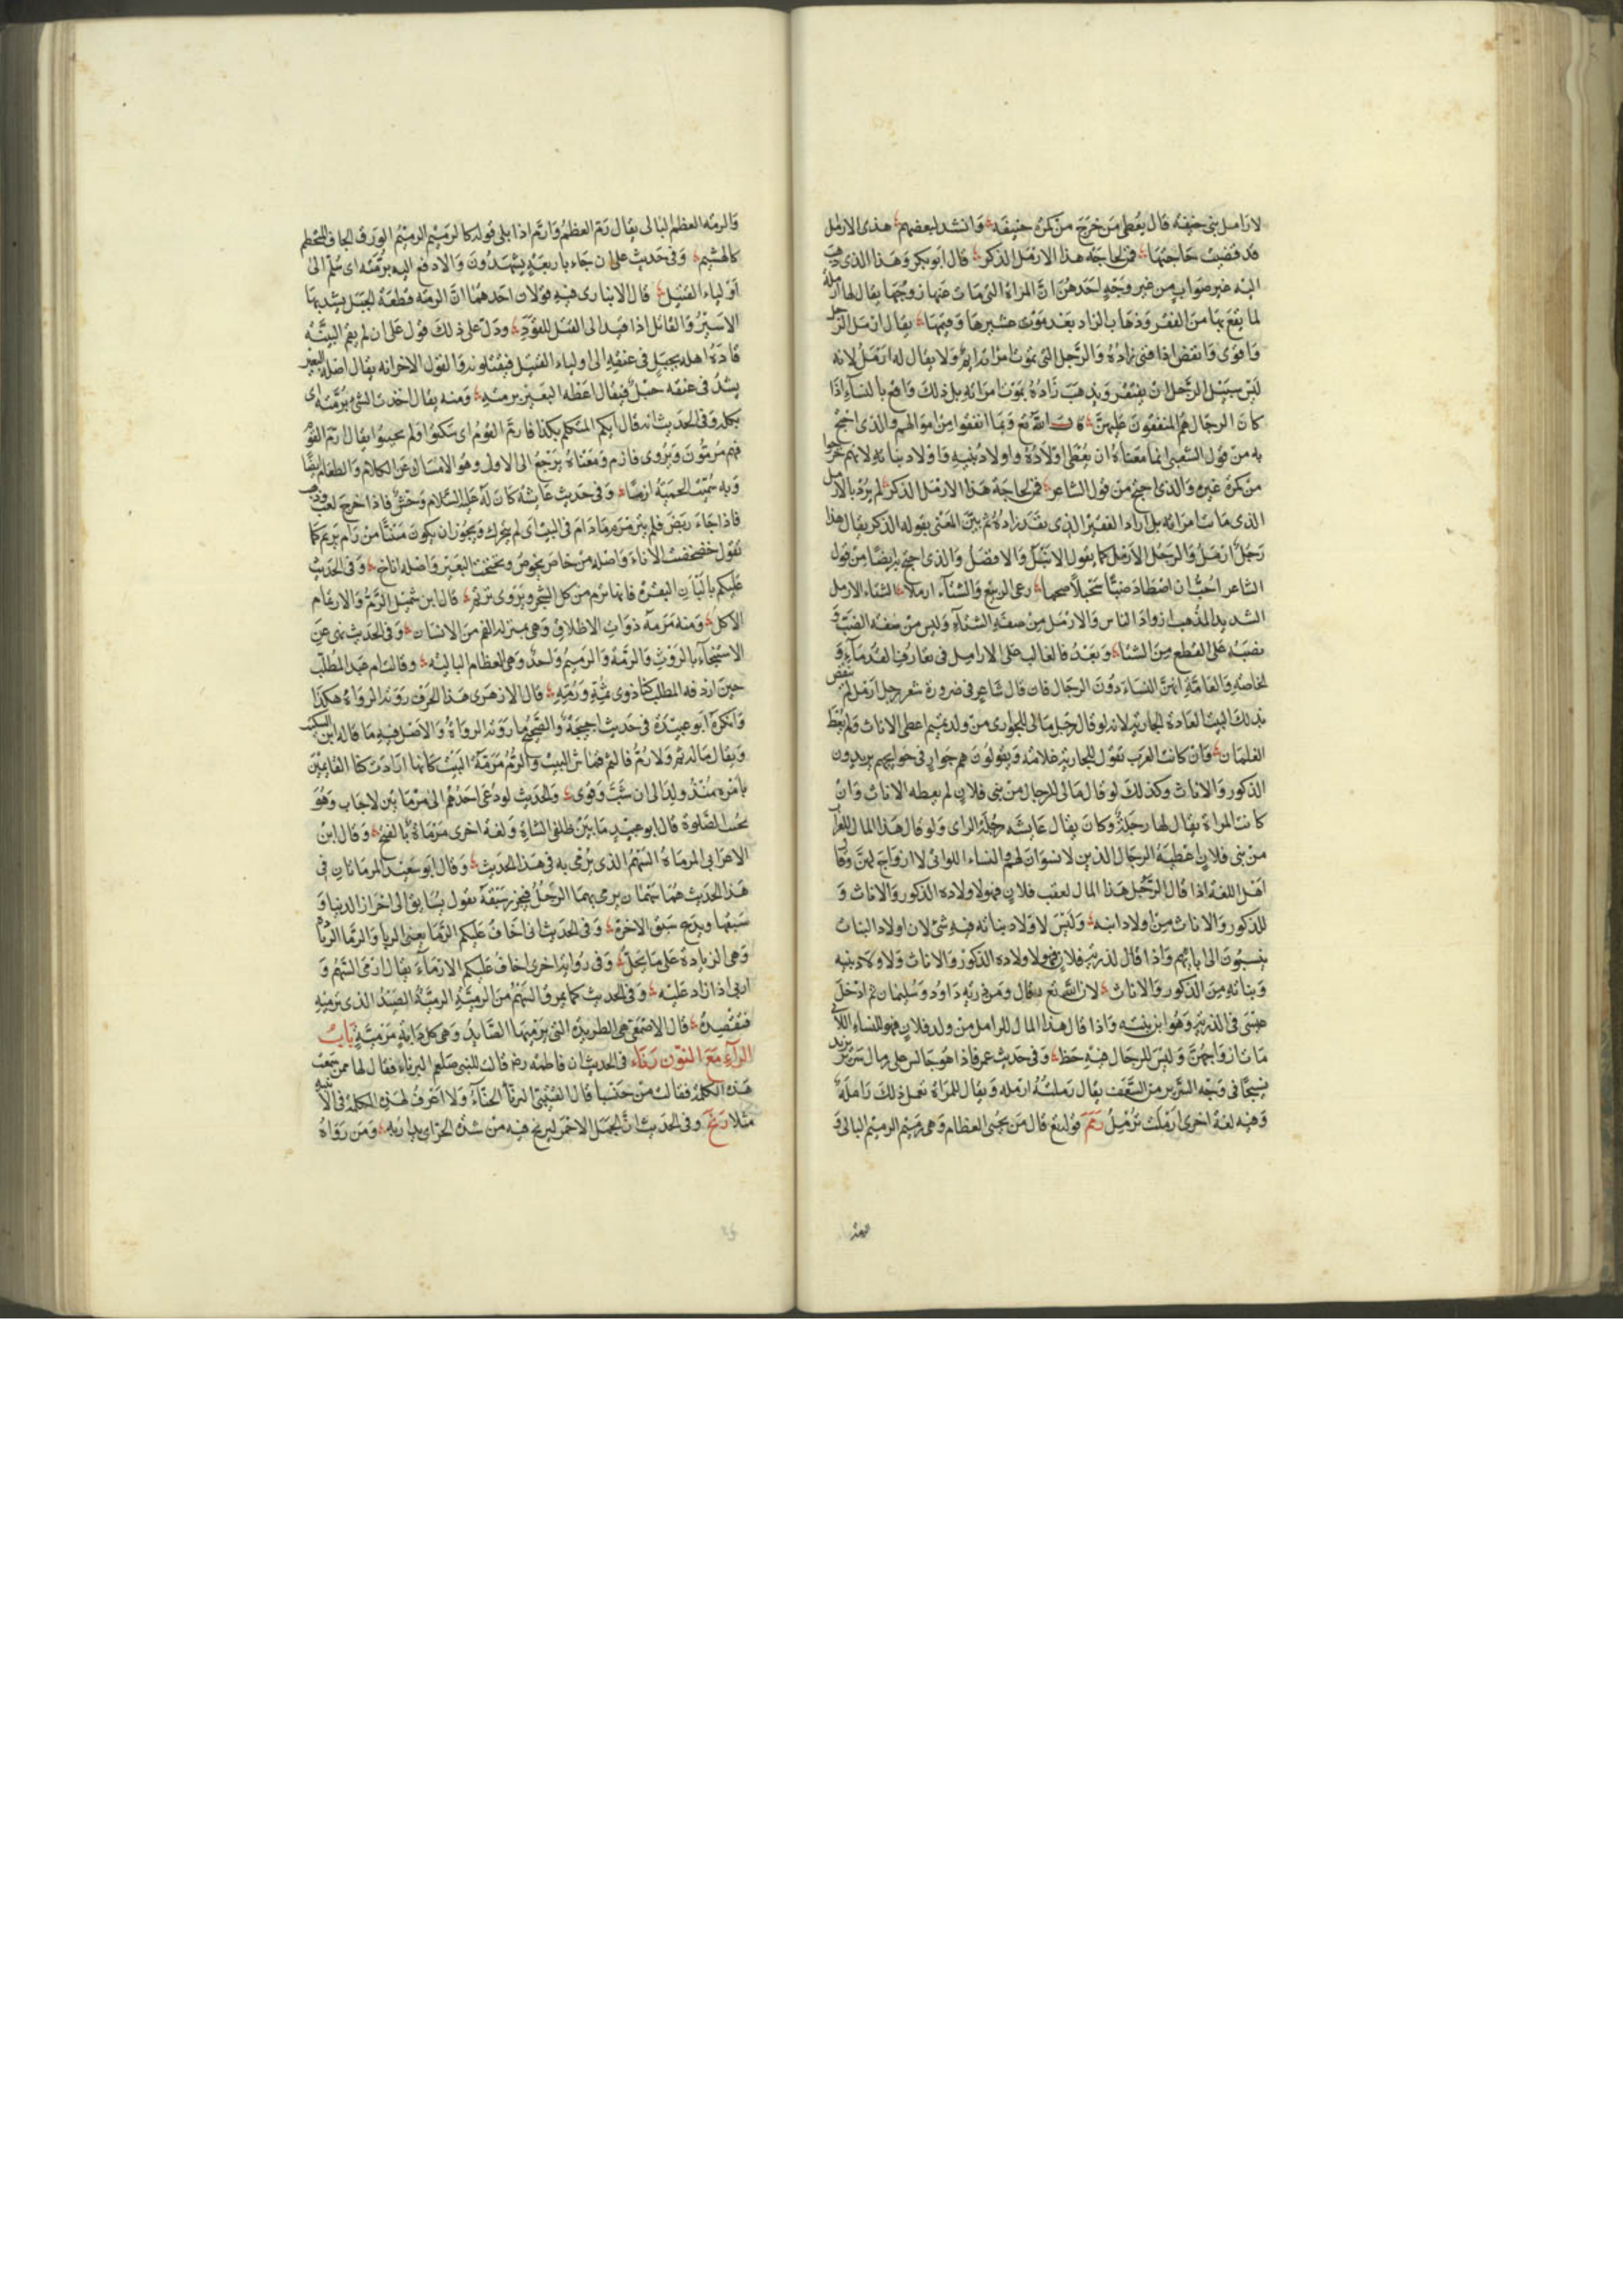 لارامل بنى حنيفه قال يعطى من خرج من كمرة حنيفه وانشد لبعضهم هذى الارامل
قد قضيت حاجتها فمن لحاجة هذا الارمل الذكر قال ابو بكر وهذا الذى ذهب
اليه غير صواب من غير وجه احدهن ان المراة التى مات عنها زوجها يقال لها ارملة
لما يقع بها من الفقر وذهاب الزاد بعد موت عشيرها وقيمها يقال ارمل الرجل
واقوى وانفض اذا فنى زاده والرجل التى تموت امراته ايم ولا يقال له ارمل لانه
ليس سبيل الرجل ان يفتقر ويذهب زاده بموت امراته بل ذلك واقع بالنساء اذا
كان الرجال هم المنفقون عليهن قال الله تع وبما انفقوا من اموالهم والذى احتج
به من قول الشعبى انما معناه ان يعطى اولاده واولاد بنيه واولاد بناته لانهم خرجوا
من كمرة غيره والذى احتج من قول الشاعر فمن لحاجة هذا الارمل الذكر لم يرد بالارمل
الذى ماتت امراته بل اراد الفقير الذى نفد زاده ثم بين المعنى بقوله الذكر يقال هذا
رجل ارمل والرجل الارمل كما يقول الانبل والافضل والذى احتج به ايضا من قول
الشاعر احب ان اصطاد ضبا سحبلا رعى الربيع والشتاء ارملا الشتاء الارمل
الشديد المذهب ازواد الناس والارمل من صفة الشتاء وليس من صفة الضب و
نصبه على القطع من الشتاء وبعد فالغالب على الارامل فى تعارف القدماء و
الخاصة والعامة انهن النساء دون الرجال فان قال شاعر فى ضرورة شعر رجل ارمل لم ينقض
بذلك البيت العادة الجارية لانه لو قال رجل مالى للجوارى من ولد تميم اعطى الاناث ولم يعط
الغلمان وان كانت العرب تقول للجارية غلامة ويقولون هم جوار فى حوايجهم يريدون
الذكور والاناث وكذلك لو قال مالى للرجال من بنى فلان لم يعطه الاناث وان
كانت المراة يقال لها رجلة وكان يقال عايشه رجلة الراى ولو قال هذا المال للعزاب
من بنى فلان اعطيه الرجال الذين لا نسوان لهم والنساء اللواتى لا ازواج لهن وقال
اهل اللغة اذا قال الرجل هذا المال لعقب فلان فهو لاولاده الذكور والاناث و
للذكور والاناث من اولاد ابنه وليس لاولاد بناته فيه شئ لان اولاد البنات
ينسبون الى ابائهم واذا قال لذرية فلان فهو لاولاده الذكور والاناث ولاولاد بنيه
وبناته من الذكور والاناث لان الله تع قال ومن ذريته داود وسليمان ثم ادخل
عيسى فى الذرية وهو ابن بنته واذا قال هذا المال للارامل من ولد فلان فهو للنساء اللاتى
مات ازواجهن وليس للرجال فيه حظ وفى حديث عمر فاذا هو جالس على رمال سرير يريد
نسجا فى وجه السرير من السعف يقال رملته ارمله ويقال للمراة تعمل ذلك راملة
وفيه لغة اخرى ارملت ترمل رمم قوله تع قال من يحيى العظام وهى رميم الرميم البالى و
والرمة العظم البالى يقال رم العظم وارم اذا بلى قوله كالرميم الرميم الورق الجاف المتحطم
كالهشيم وفى حديث على ان جاء باربعة يشهدون والا دفع اليه برمته اى سلم الى
اولياء القتيل قال الانبارى فيه قولان احدهما ان الرمة قطعة لحبل يشد بها
الاسير والقاتل اذا قيد الى القتل للقود ودل على ذلك قول على ان لم يقم البينة
قاده اهله بحبل فى عنقه الى اولياء القتيل فيقتلونه والقول الاخر انه يقال اصله البعير
يشد فى عنقه حبل فيقال اعطه البعير برمته ومنه يقال اخذت الشئ برمته اى
بكله وفى الحديث انه قال ايكم المتكلم بكذا فارم القوم اى سكتوا فلم يجيبوا يقال رم القوم
فهم مرمون ويروى فازم ومعناه يرجع الى الاول وهو الامساك عن الكلام والطعام ايضا
وبه سميت الحمية ازما وفى حديث عايشة كان له عليه السلام وحش فاذا خرج لعب وذهب
فاذا جاء ربض فلم يترمرم ما دام فى البيت اى لم يتحرك ويجوز ان يكون مبنيا من رام يريم كما
تقول خضخضت الاناء واصله من خاض يخوض ونخنخت البعير واصله اناخ وفى الحديث
عليكم بالبان البقر فانها ترم من كل الشجر ويروى ترتم قال ابن شميل الرم والارتمام
الاكل ومنه مرمة ذوات الاظلاف وهى بمنزلة الفم من الانسان وفى الحديث نهى عن
الاستنجاء بالروث والرمة والرميم واحد وهى العظام البالية وقالت ام عبد المطلب
حين اردفه المطلب كنا ذوى ثمة ورمه قال الازهرى هذا الحرف روته الرواة هكذا
وانكره ابو عبيدة فى حديث احيحة والصحيح ما روته الرواة والاصل فيه ما قاله ابن السكيت
ويقال ما له ثم ولا رم فالثم قماش البيت والرم مرمة البيت كانها ارادت كنا القايمين
بامره منذ ولد الى ان شب وقوى والحديث لو دعى احدهم الى مرماتين لاجاب وهو
يجب الصلوة قال ابو عبيد ما بين ظلفى الشاة ولغة اخرى مرماة بالفتح وقال ابن
الاعرابى المرماة السهم الذى يرمى به فى هذا الحديث وقال ابو سعيد المرماتان فى
هذا الحديث هما سهمان يرمى بهما الرجل فيحرز سبقه يقول يسابق الى احراز الدنيا و
سبقها ويدع سبق الاخرة وفى الحديث انى اخاف عليكم الرما يعنى الربا والرما الربا
وهى الزيادة على ما يحل وفى رواية اخرى اخاف عليكم الارماء يقال ارمى السهم و
اربى اذا زاد عليه وفى الحديث كما يمرق السهم من الرمية الرمية الصيد الذى ترميه
فتقصده قال الاصمعى هى الطريدة التى يرميها الصايد وهى كل دابة مرمية باب
الراء مع النون رناء فى الحديث ان فاطمة رضه قالت للنبى صلعم اليرناء فقال لها ممن سمعت
هذه الكلمة فقالت من خنساء قال القتيبى اليرنأ الحناء ولا اعرف لهذه الكلمة فى الابنية
مثلا رنح وفى الحديث ان الجمل الاحمر ليرنح فيه من شدة الحر اى يدار به ومن رواه
والرمة